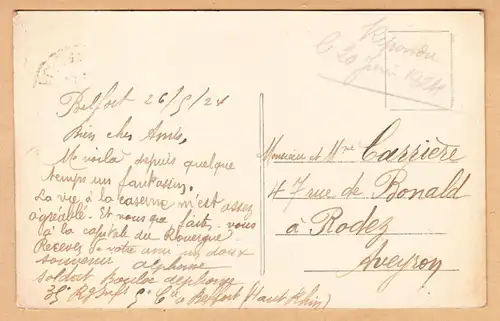 Répondu
le 20 juin 1924
Belfort 26/5/24
Bien chers Amis,
Me voilà depuis quelque
temps un fantassin.
La vie à la caserne m'est assez
agréable. Et vous que faites-vous
à la capitale du Rouergue
Recevez de votre ami un doux
souvenir alphonse
soldat alphonse
35e Regt 5e Cie Belfort (Haut Rhin)
Monsieur et Mme Carrière
47 rue de Bonald
à Rodez
Aveyron